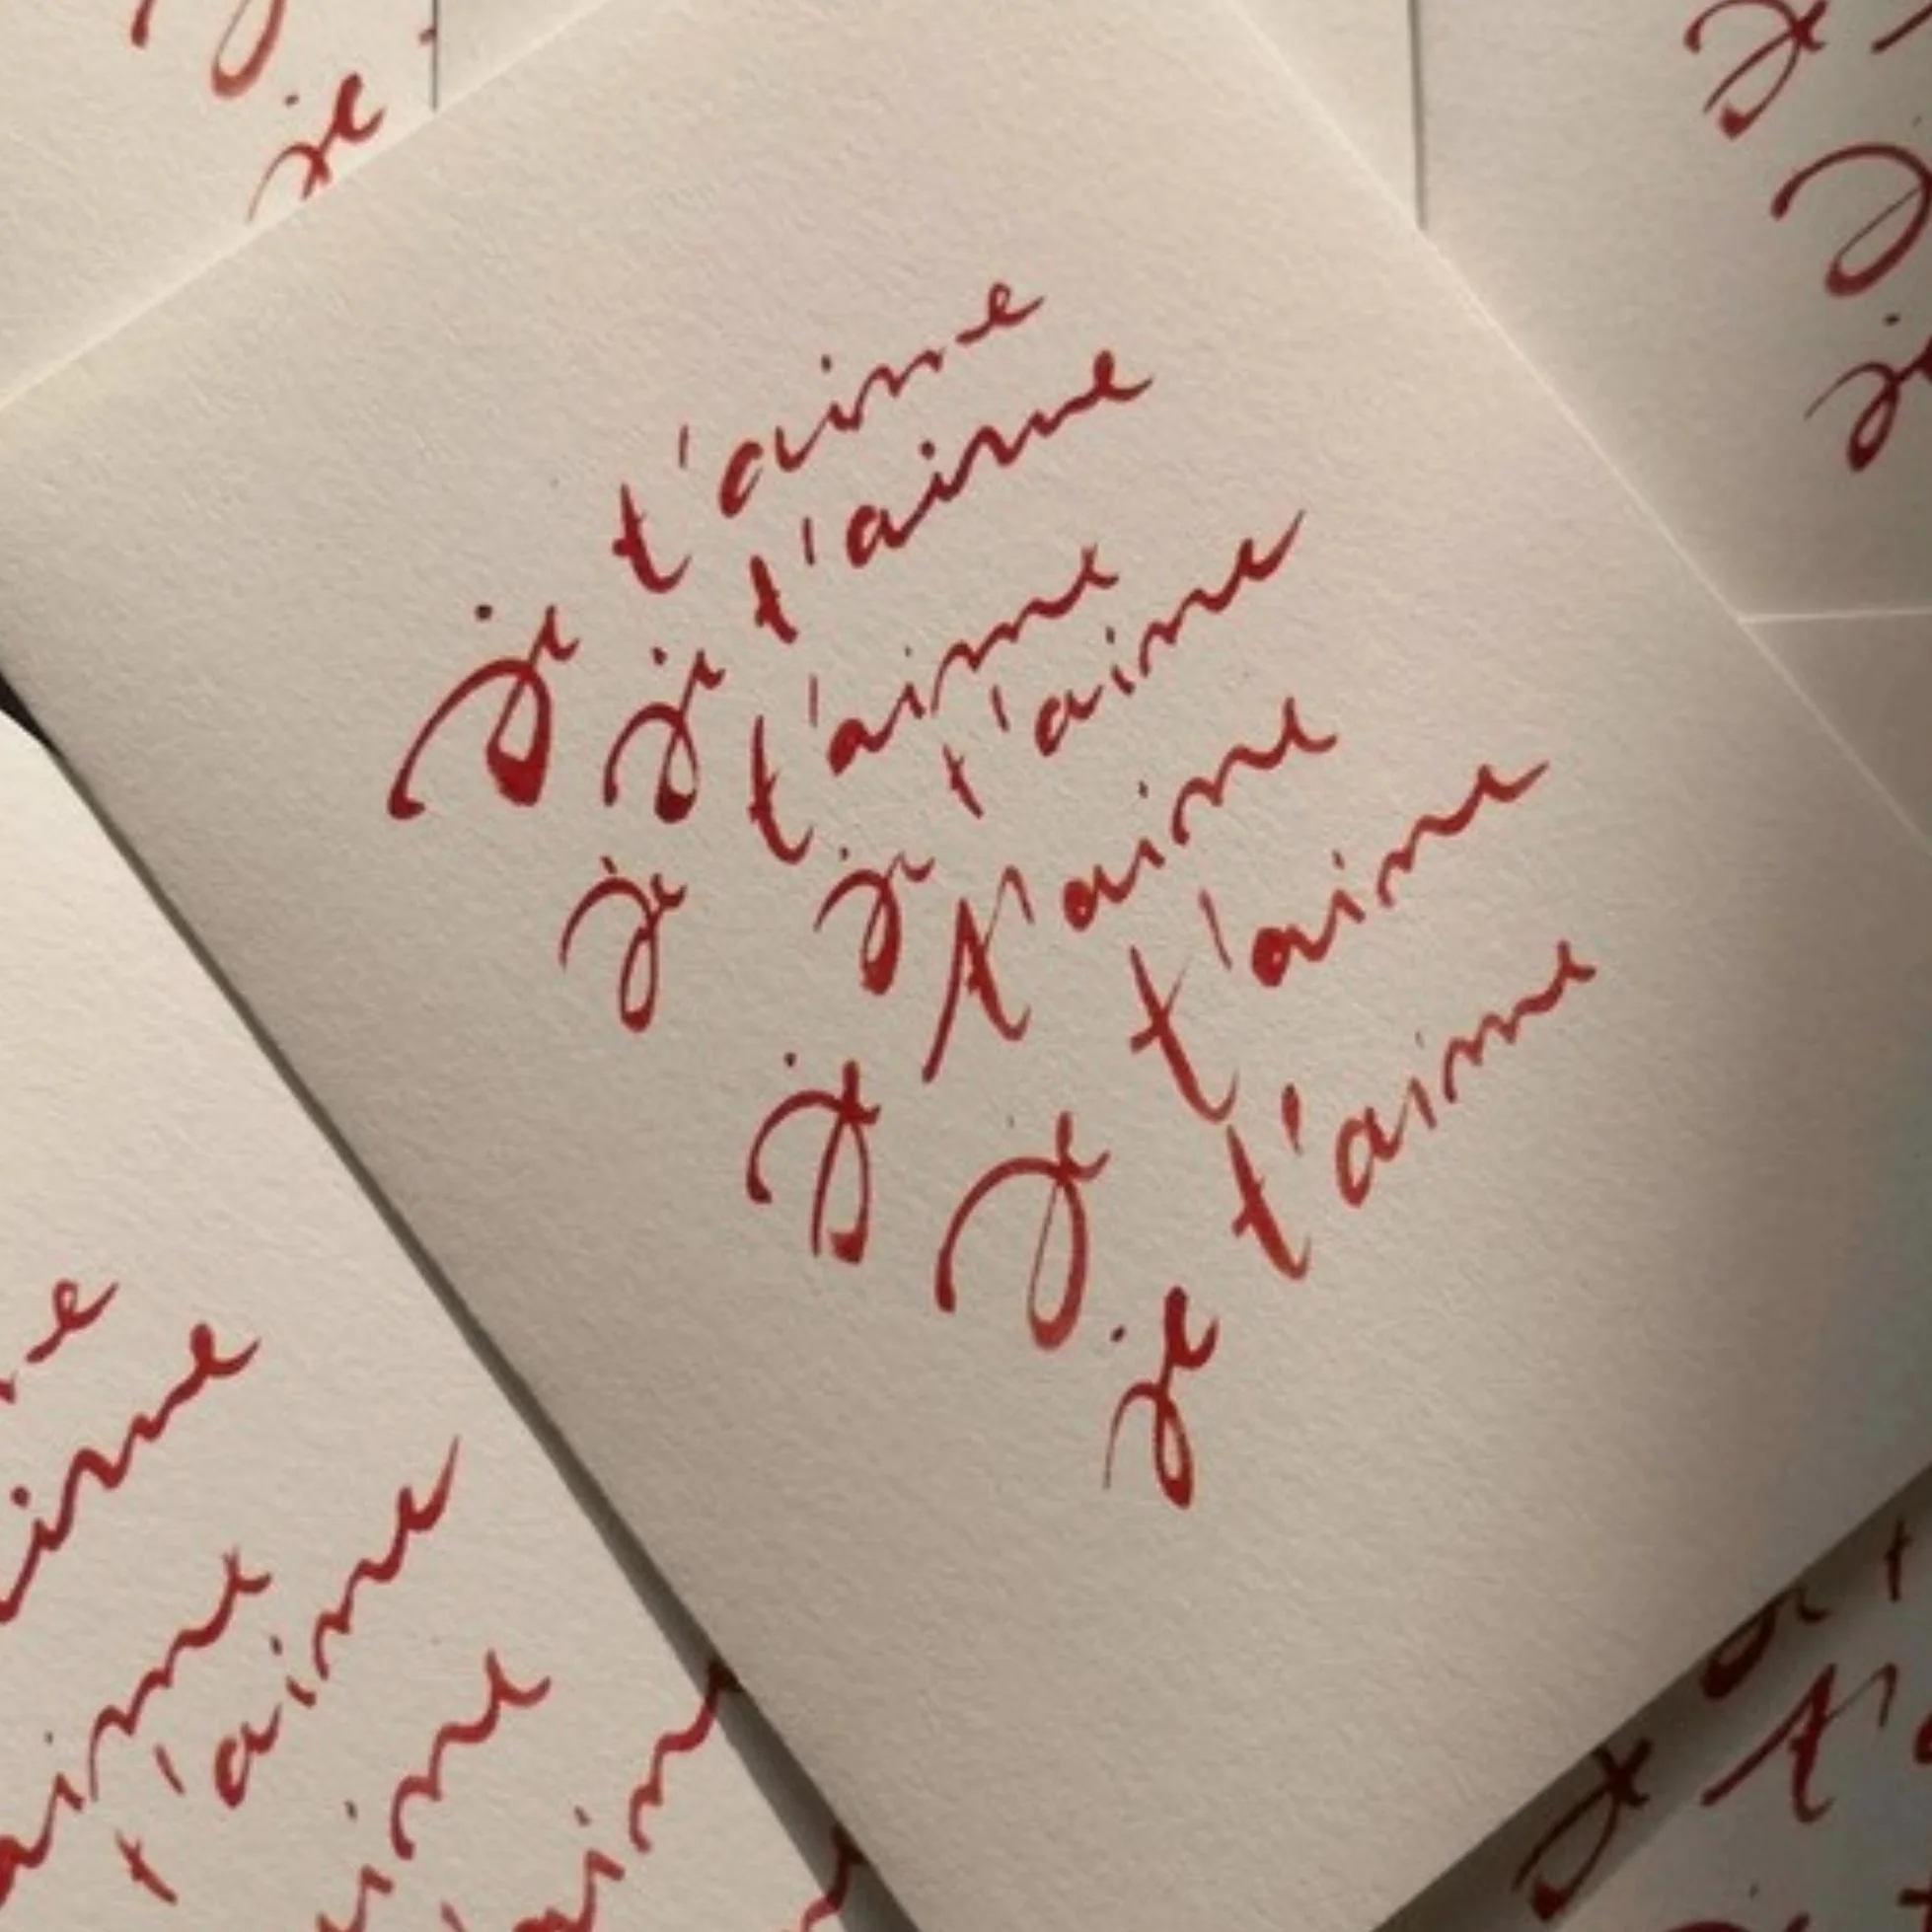 je t'aime
je t'aime
je t'aime
je t'aime
je t'aime
je t'aime
je t'aime
je
e
aime
aime
t'aime